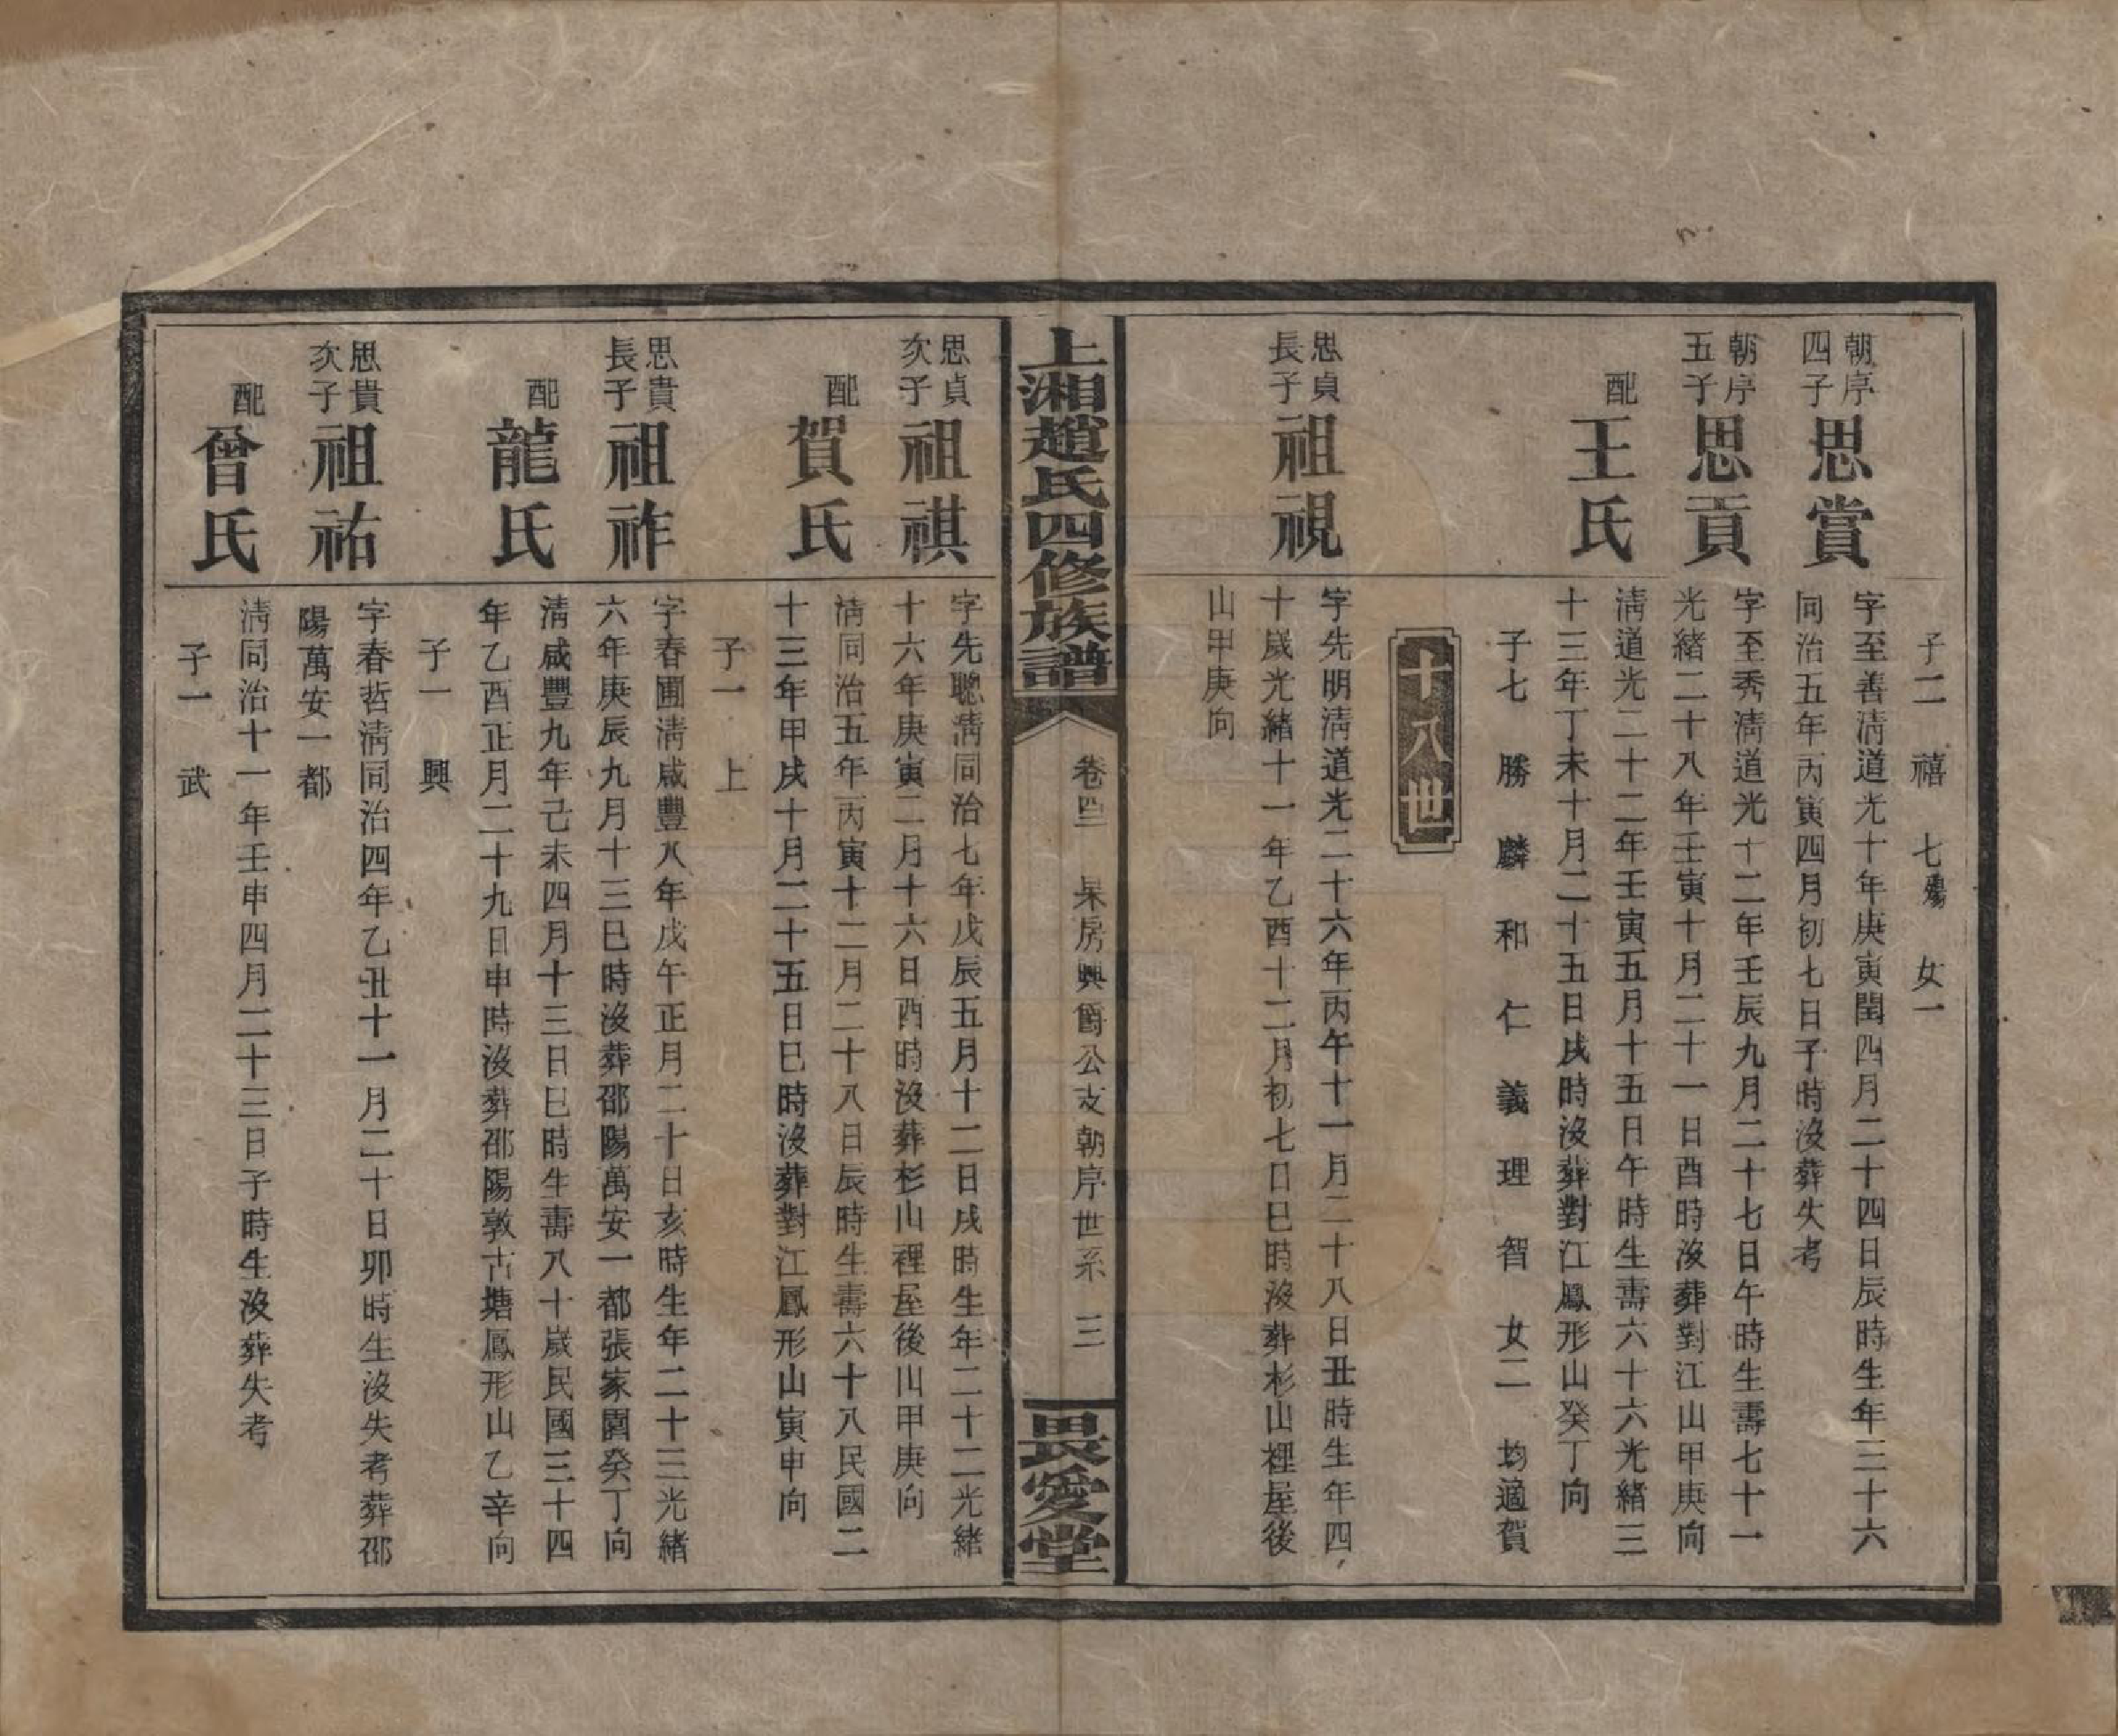 子二 禧 七殤 女一
朝序四子 思賞
字至善淸道光十年庚寅閏四月二十四日辰時生年三十六
同治五年丙寅四月初七日子時沒葬失考
朝序五子 思貢
字至秀淸道光十二年壬辰九月二十七日午時生壽七十一
光緒二十八年壬寅十月二十一日酉時沒葬對江山甲庚向
配 王氏
淸道光二十二年壬寅五月十五日午時生壽六十六光緒三
十三年丁未十月二十五日戌時沒葬對江鳳形山癸丁向
子七 勝 麟 和 仁 義 理 智 女二 均適賀
十八世
思貞長子 祖視
字先明淸道光二十六年丙午十一月二十八日丑時生年四
十歲光緒十一年乙酉十二月初七日巳時沒葬杉山裡屋後
山甲庚向
上湘趙氏四修族譜
卷四三 杲房興爵公支朝序世系 三
畏愛堂
思貞次子 祖祺
字先聰淸同治七年戊辰五月十二日戌時生年二十二光緒
十六年庚寅二月十六日酉時沒葬杉山裡屋後山甲庚向
配 賀氏
淸同治五年丙寅十二月二十八日辰時生壽六十八民國二
十三年甲戌十月二十五日巳時沒葬對江鳳形山寅申向
子一 上
思貴長子 祖祚
字春圃淸咸豐八年戊午正月二十日亥時生年二十三光緒
六年庚辰九月十三巳時沒葬邵陽萬安一都張家園癸丁向
配 龍氏
淸咸豐九年己未四月十三日巳時生壽八十歲民國三十四
年乙酉正月二十九日申時沒葬邵陽敦古塘鳳形山乙辛向
子一 興
思貴次子 祖祐
字春哲淸同治四年乙丑十一月二十日卯時生沒失考葬邵
陽萬安一都
配 曾氏
淸同治十一年壬申四月二十三日子時生沒葬失考
子一 武